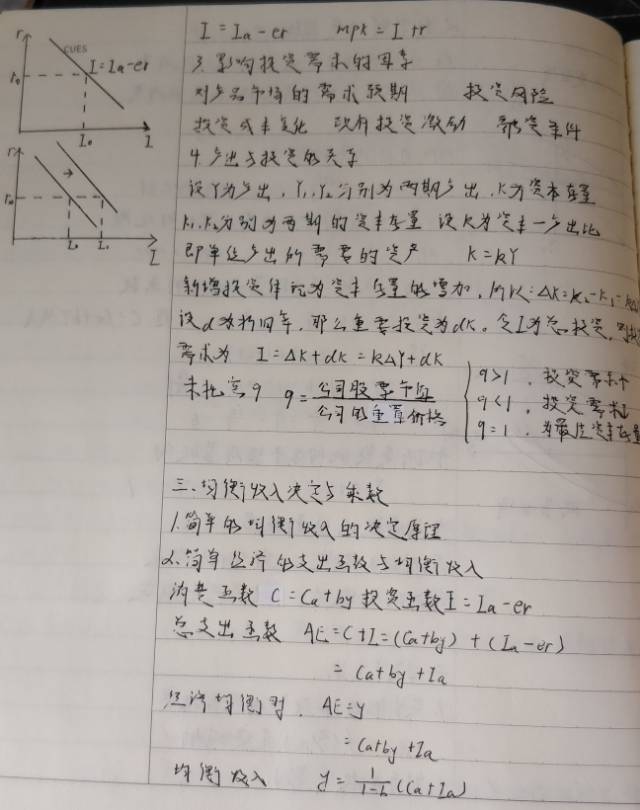 CUES
r
r₀
I=Ia-er
I₀
I
r
r₀
I₀
I₁
I
I=Ia-er MPK=I+r
3.影响投资需求的因素
对产品市场的需求预期 投资风险
投资成本变化 现有投资激励 融资条件
4.产出与投资的关系
设Y为产出,Y₁,Y₂分别为两期产出,K为资本存量
K₁,K₂分别为两期的资本存量 设k为资本-产出比
即单位产出所需要的资产 K=kY
新增投资体现为资本存量的增加,所以:ΔK=K₂-K₁=kΔ
设d为折旧率,那么重置投资为dK。令I为总投资,则
需求为 I=ΔK+dK=kΔY+dK
末托宾q q=公司股票市值/公司的重置价格
q>1,投资需求个
q<1,投资需求
q=1,为最佳资本存量
三.均衡收入决定与乘数
1.简单的均衡收入的决定原理
2.简单经济的支出函数与均衡收入
消费函数 C=Ca+by 投资函数I=Ia-er
总支出函数 AE=C+I=(Ca+by)+(Ia-er)
=Ca+by+Ia
经济均衡时,AE=y
=Ca+by+Ia
均衡收入 y=1/(1-b)(Ca+Ia)